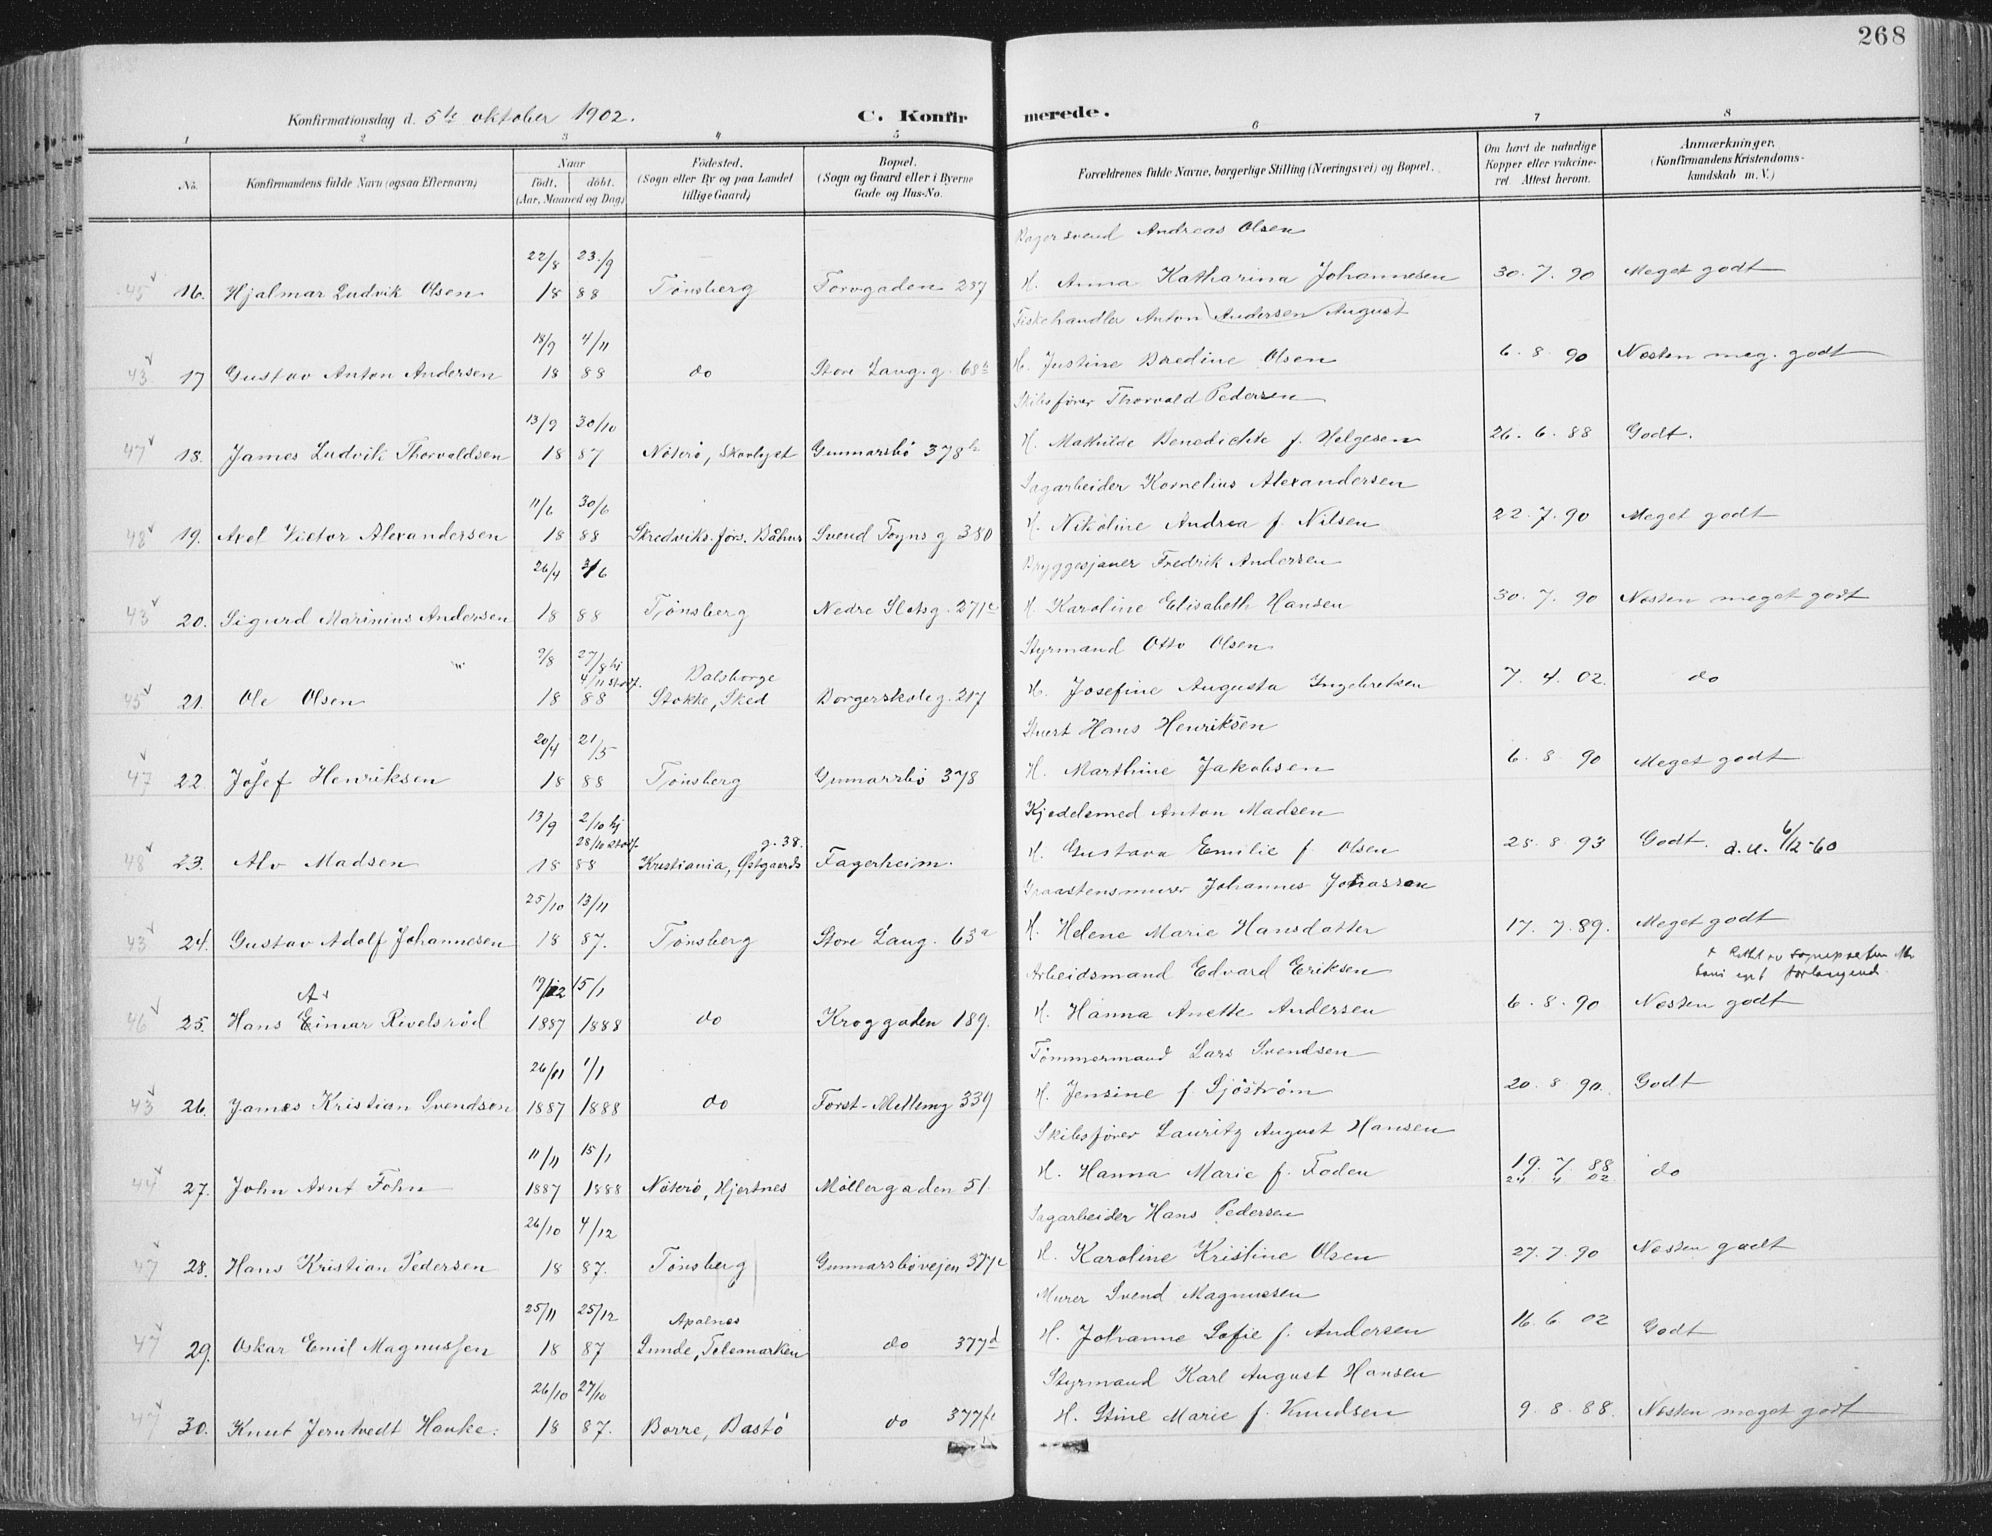 268
Konfirmationsdag d. 5te oktober 1902. C. Konfirmerede.
1 2 3 4 5 6 7 8
No. Konfirmandens fulde Navn (ogsaa Efternavn) Naar født. døbt. (Aar, Maaned og Dag) Fødested. (Sogn eller By og paa Landet tillige Gaard) Bopæl. (Sogn og Gaard eller i Byerne Gade og Hus-No. Forældrenes fulde Navne, borgerlige Stilling (Næringsvei) og Bopæl. Om havt de naturlige Kopper eller vakcineret Attest herom. Anmærkninger. (Konfirmandens Kristendomskundskab m. V.)
Bagersvend Andreas Olsen
22/8 23./9
45 v 16. Hjalmar Ludvik Olsen 18 88 Tønsberg Torvgaden 287 H. Anna Katharina Johannesen 30. 7. 90 Meget godt
Fiskehandler Anton Andersen August
18/9 4/11
43 v 17 Gustav Anton Andersen 18 88 do Store Lang. g. 68b H. Justine Bredine Olsen 6. 8. 90 Næsten meg. godt
Skibsfører Thorvald Pedersen
13/9 30/10
47 v 18. James Ludvik Thorvaldsen 18 87 Nøterø, Skovlyst Gunnarsbø 378h H. Mathilde Benedichte f. Helgesen 26. 6. 88 Godt.
Sagarbeider Kornelius Alexandersen
11/6 30/6
48 v 19. Axel Victor Alexandersen 18 88 Skredviks. fors. Båhus Svend Foyns g 380 H. Nikoline Andrea f. Nilsen 22. 7. 90 Meget godt
Bryggesjauer Fredrik Andersen
26/4 3/6
43 v 20. Sigurd Marinius Andersen 18 88 Tønsberg Nedre Slotsg. 271c H. Karoline Elisabeth Hansen 30. 7. 90 Næsten meget godt
Styrmand Otto Olsen
9/8 27/8 hj 4/11 stadf. Dalsborge
45 v 21. Ole Olsen 18 88 Stokke, Sked Borgerskoleg. 217 H. Josefine Augusta Ingebretsen 7. 4. 02. do
Stuert Hans Henriksen
20/4 21/5
47 v 22. Josef Henriksen 18 88 Tønsberg Gunnarsbø 378 H. Marthine Jakobsen 6. 8. 90 Meget godt
Kjedelsmed Anton Madsen
13/9 2/10 hj 28/10 stadf g. 38.
48 v 23. Alv Madsen 18 88 Kristiania, Østgaards Fagerheim. H. Gustava Emilie f. Olsen 28. 8. 93 Godt. a.u. 6/12-60
Graastensmurer Johannes Johnassen
25/10 13/11
43 v 24. Gustav Adolf Johannesen 18 87. Tønsberg Store Lang. 63a H. Helene Marie Hansdatter 17. 7. 89. Meget godt
Arbeidsmand Edvard Eriksen
19/12 15/1
46 v 25. Hans Einar Revelsrød 1887 1888 do Kroggaden 189. H. Hanna Anette Andersen 6. 8. 90 Næsten godt
Tømmermand Lars Svendsen
26/11 1/1
43 v 26. James Kristian Svendsen 1887 1888 do Forst-Mellemg 339 H. Jensine f. Sjöström 20. 8. 90. Godt
Skibsfører Lauritz August Hansen
11/11 15/1
44 v 27. John Arnt Føhn 1887 1888 Nøterø, Hjertnes Møllergaden 51. H. Hanna Marie f. Foden 19. 7. 88 24 4 02 do
Sagarbeider Hans Pedersen
26/10 4/12
47 v 28. Hans Kristian Pedersen 18 87. Tønsberg Gunnarsbøvejen 377c H. Karoline Kristine Olsen 27. 7. 90 Næsten godt
Murer Svend Magnussen
25/11 25/12 Apalnes
47 v 29. Oskar Emil Magnussen 18 87 Lunde, Telemarken do 377d H. Johanne Sofie f. Andersen 16. 6 02 Godt
Styrmand Karl August Hansen
26/10 27/10
47 v 30. Knut Jerntvedt Hanke. 18 87. Borre, Bastø do 377f H. Stine Marie f. Knudsen 9. 8. 88. Næsten meget godt